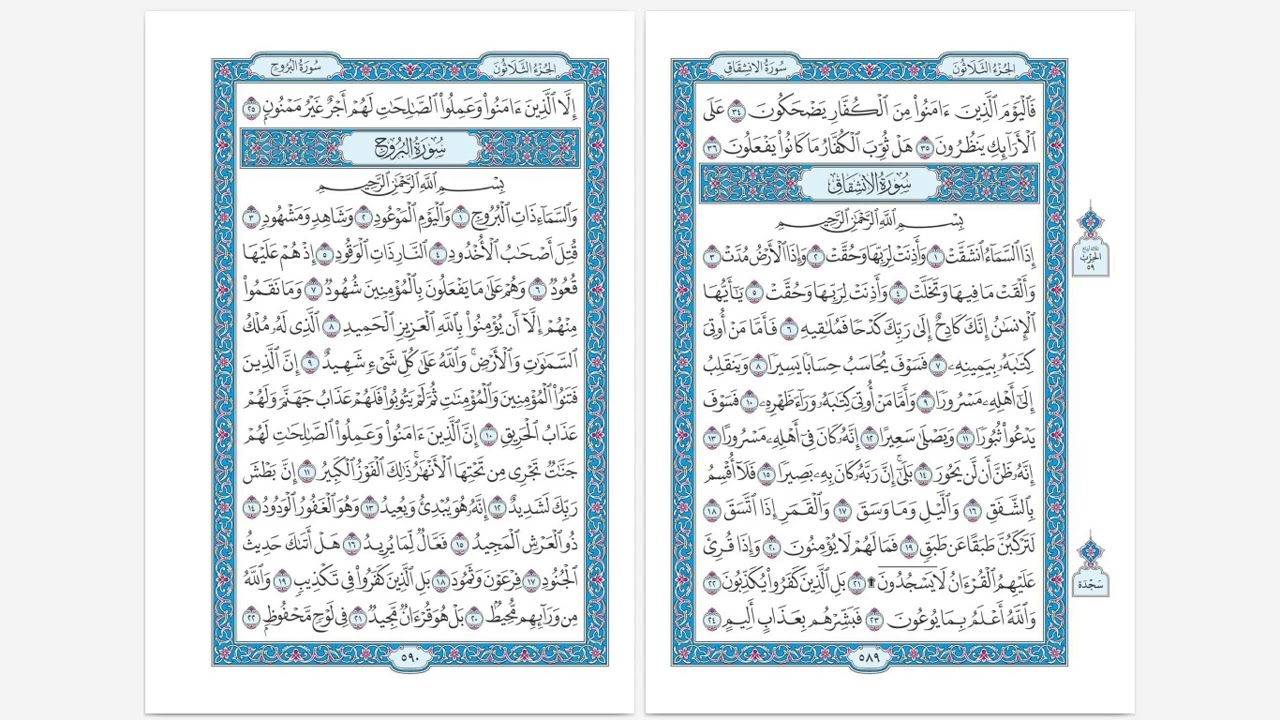 سُورَةُ الانشِقَاق
الجُزْءُ الثَّلَاثُونَ
فَٱلْيَوْمَ ٱلَّذِينَ ءَامَنُوا۟ مِنَ ٱلْكُفَّارِ يَضْحَكُونَ ٣٤ عَلَى
ٱلْأَرَآئِكِ يَنظُرُونَ ٣٥ هَلْ ثُوِّبَ ٱلْكُفَّارُ مَا كَانُوا۟ يَفْعَلُونَ ٣٦
سُورَةُ الانشِقَاق
بِسْمِ ٱللَّهِ ٱلرَّحْمَٰنِ ٱلرَّحِيمِ
إِذَا ٱلسَّمَآءُ ٱنشَقَّتْ ١ وَأَذِنَتْ لِرَبِّهَا وَحُقَّتْ ٢ وَإِذَا ٱلْأَرْضُ مُدَّتْ ٣
وَأَلْقَتْ مَا فِيهَا وَتَخَلَّتْ ٤ وَأَذِنَتْ لِرَبِّهَا وَحُقَّتْ ٥ يَٰٓأَيُّهَا
ٱلْإِنسَٰنُ إِنَّكَ كَادِحٌ إِلَىٰ رَبِّكَ كَدْحًا فَمُلَٰقِيهِ ٦ فَأَمَّا مَنْ أُوتِىَ
كِتَٰبَهُۥ بِيَمِينِهِۦ ٧ فَسَوْفَ يُحَاسَبُ حِسَابًا يَسِيرًا ٨ وَيَنقَلِبُ
إِلَىٰٓ أَهْلِهِۦ مَسْرُورًا ٩ وَأَمَّا مَنْ أُوتِىَ كِتَٰبَهُۥ وَرَآءَ ظَهْرِهِۦ ١٠ فَسَوْفَ
يَدْعُوا۟ ثُبُورًا ١١ وَيَصْلَىٰ سَعِيرًا ١٢ إِنَّهُۥ كَانَ فِىٓ أَهْلِهِۦ مَسْرُورًا ١٣
إِنَّهُۥ ظَنَّ أَن لَّن يَحُورَ ١٤ بَلَىٰٓ إِنَّ رَبَّهُۥ كَانَ بِهِۦ بَصِيرًا ١٥ فَلَآ أُقْسِمُ
بِٱلشَّفَقِ ١٦ وَٱلَّيْلِ وَمَا وَسَقَ ١٧ وَٱلْقَمَرِ إِذَا ٱتَّسَقَ ١٨
لَتَرْكَبُنَّ طَبَقًا عَن طَبَقٍ ١٩ فَمَا لَهُمْ لَا يُؤْمِنُونَ ٢٠ وَإِذَا قُرِئَ
عَلَيْهِمُ ٱلْقُرْءَانُ لَا يَسْجُدُونَ ۩ ٢١ بَلِ ٱلَّذِينَ كَفَرُوا۟ يُكَذِّبُونَ ٢٢
وَٱللَّهُ أَعْلَمُ بِمَا يُوعُونَ ٢٣ فَبَشِّرْهُم بِعَذَابٍ أَلِيمٍ ٢٤
٥٨٩
الحِزْب
٥٩
سَجْدَة
سُورَةُ البُرُوج
الجُزْءُ الثَّلَاثُونَ
إِلَّا ٱلَّذِينَ ءَامَنُوا۟ وَعَمِلُوا۟ ٱلصَّٰلِحَٰتِ لَهُمْ أَجْرٌ غَيْرُ مَمْنُونٍۭ ٢٥
سُورَةُ البُرُوج
بِسْمِ ٱللَّهِ ٱلرَّحْمَٰنِ ٱلرَّحِيمِ
وَٱلسَّمَآءِ ذَاتِ ٱلْبُرُوجِ ١ وَٱلْيَوْمِ ٱلْمَوْعُودِ ٢ وَشَاهِدٍ وَمَشْهُودٍ ٣
قُتِلَ أَصْحَٰبُ ٱلْأُخْدُودِ ٤ ٱلنَّارِ ذَاتِ ٱلْوَقُودِ ٥ إِذْ هُمْ عَلَيْهَا
قُعُودٌ ٦ وَهُمْ عَلَىٰ مَا يَفْعَلُونَ بِٱلْمُؤْمِنِينَ شُهُودٌ ٧ وَمَا نَقَمُوا۟
مِنْهُمْ إِلَّآ أَن يُؤْمِنُوا۟ بِٱللَّهِ ٱلْعَزِيزِ ٱلْحَمِيدِ ٨ ٱلَّذِى لَهُۥ مُلْكُ
ٱلسَّمَٰوَٰتِ وَٱلْأَرْضِ ۚ وَٱللَّهُ عَلَىٰ كُلِّ شَىْءٍ شَهِيدٌ ٩ إِنَّ ٱلَّذِينَ
فَتَنُوا۟ ٱلْمُؤْمِنِينَ وَٱلْمُؤْمِنَٰتِ ثُمَّ لَمْ يَتُوبُوا۟ فَلَهُمْ عَذَابُ جَهَنَّمَ وَلَهُمْ
عَذَابُ ٱلْحَرِيقِ ١٠ إِنَّ ٱلَّذِينَ ءَامَنُوا۟ وَعَمِلُوا۟ ٱلصَّٰلِحَٰتِ لَهُمْ
جَنَّٰتٌ تَجْرِى مِن تَحْتِهَا ٱلْأَنْهَٰرُ ۚ ذَٰلِكَ ٱلْفَوْزُ ٱلْكَبِيرُ ١١ إِنَّ بَطْشَ
رَبِّكَ لَشَدِيدٌ ١٢ إِنَّهُۥ هُوَ يُبْدِئُ وَيُعِيدُ ١٣ وَهُوَ ٱلْغَفُورُ ٱلْوَدُودُ ١٤
ذُو ٱلْعَرْشِ ٱلْمَجِيدُ ١٥ فَعَّالٌ لِّمَا يُرِيدُ ١٦ هَلْ أَتَىٰكَ حَدِيثُ
ٱلْجُنُودِ ١٧ فِرْعَوْنَ وَثَمُودَ ١٨ بَلِ ٱلَّذِينَ كَفَرُوا۟ فِى تَكْذِيبٍ ١٩ وَٱللَّهُ
مِن وَرَآئِهِم مُّحِيطٌۢ ٢٠ بَلْ هُوَ قُرْءَانٌ مَّجِيدٌ ٢١ فِى لَوْحٍ مَّحْفُوظٍۭ ٢٢
٥٩٠